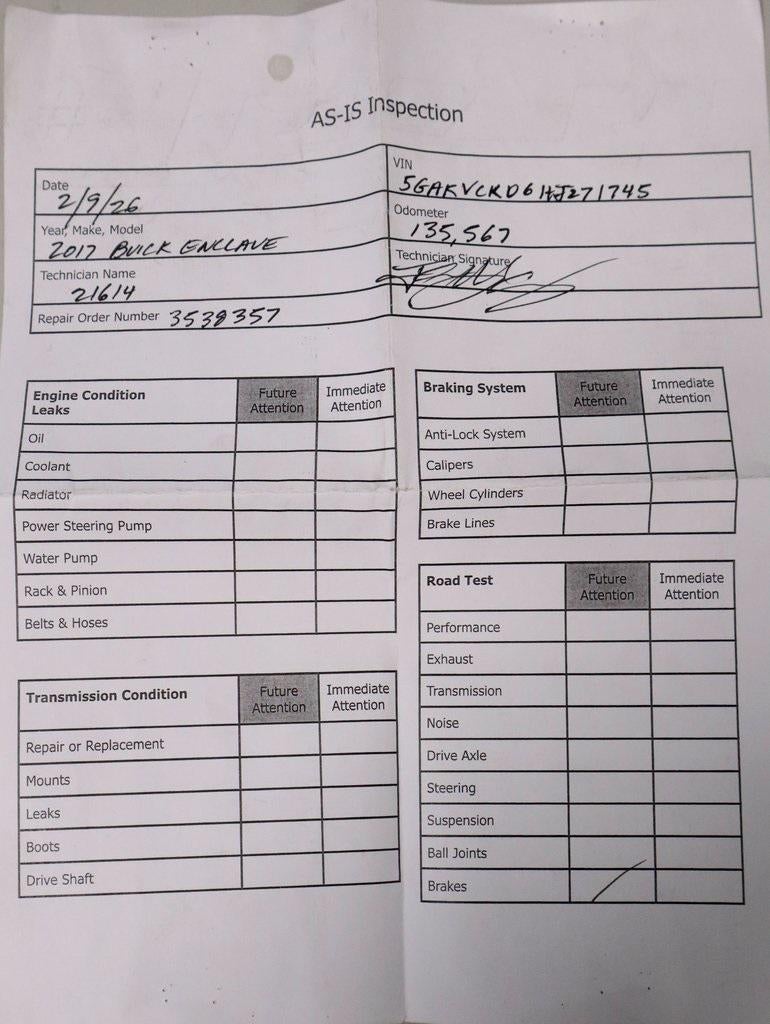 AS-IS Inspection
Date
2/9/26
VIN
5GAKVCKD6HJ271745
Year, Make, Model
2017 BUICK ENCLAVE
Odometer
135,567
Technician Name
21614
Technician Signature
Repair Order Number 3538357
Engine Condition
Leaks
Future
Attention
Immediate
Attention
Oil
Coolant
Radiator
Power Steering Pump
Water Pump
Rack & Pinion
Belts & Hoses
Transmission Condition
Future
Attention
Immediate
Attention
Repair or Replacement
Mounts
Leaks
Boots
Drive Shaft
Braking System
Future
Attention
Immediate
Attention
Anti-Lock System
Calipers
Wheel Cylinders
Brake Lines
Road Test
Future
Attention
Immediate
Attention
Performance
Exhaust
Transmission
Noise
Drive Axle
Steering
Suspension
Ball Joints
Brakes